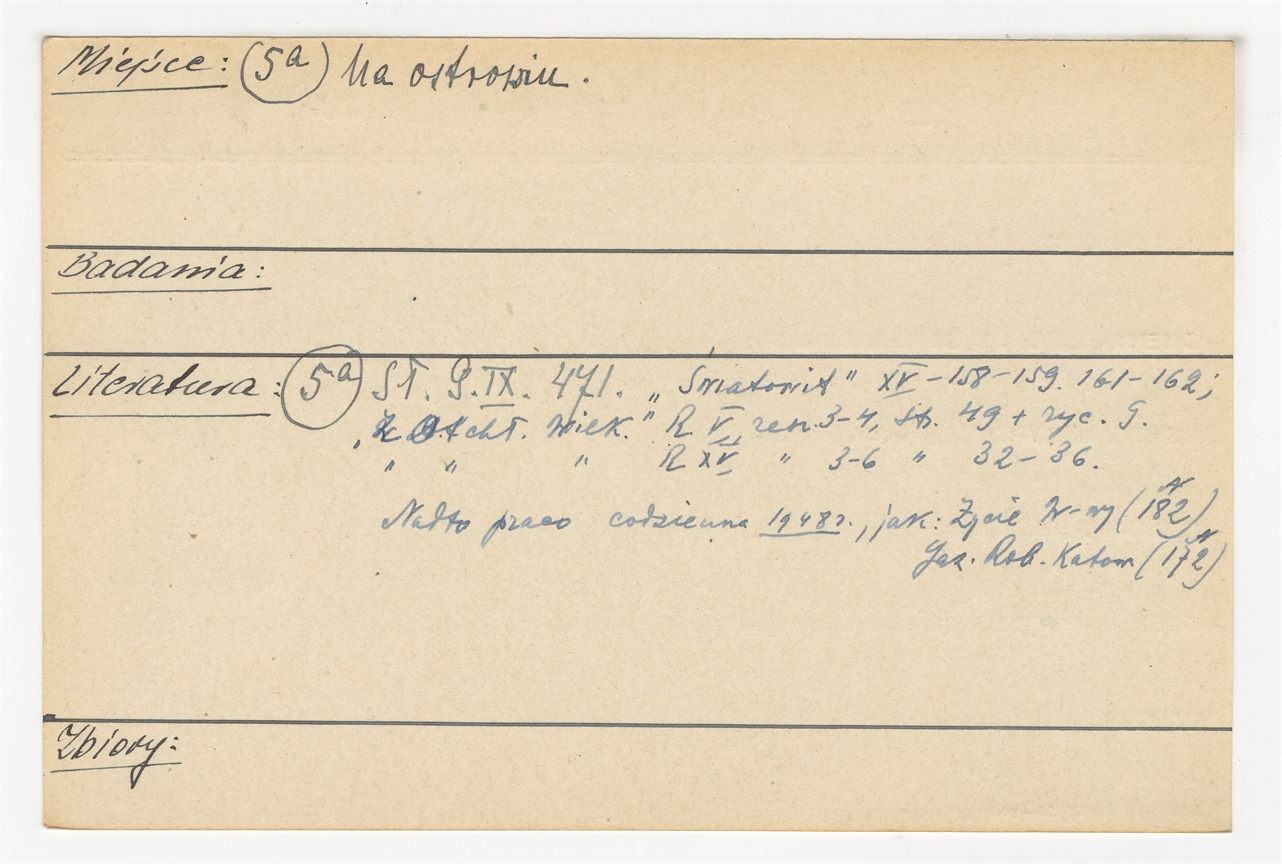 Miejsce: (5a) Na ostrowiu.
Badania:
Literatura: (5a) Sł. G. IX. 471. „Światowit" XV-158-159. 161-162;
„Z Otchł. Wiek." R V, zesz. 3-4, str. 49 + ryc. G.
" " " R XV " 3-6 " 32-36.
Nadto praco codzienna 1948r., jak: Życie W-wy (182)
Gaz. Rob. Katow. (172)
Zbiory: